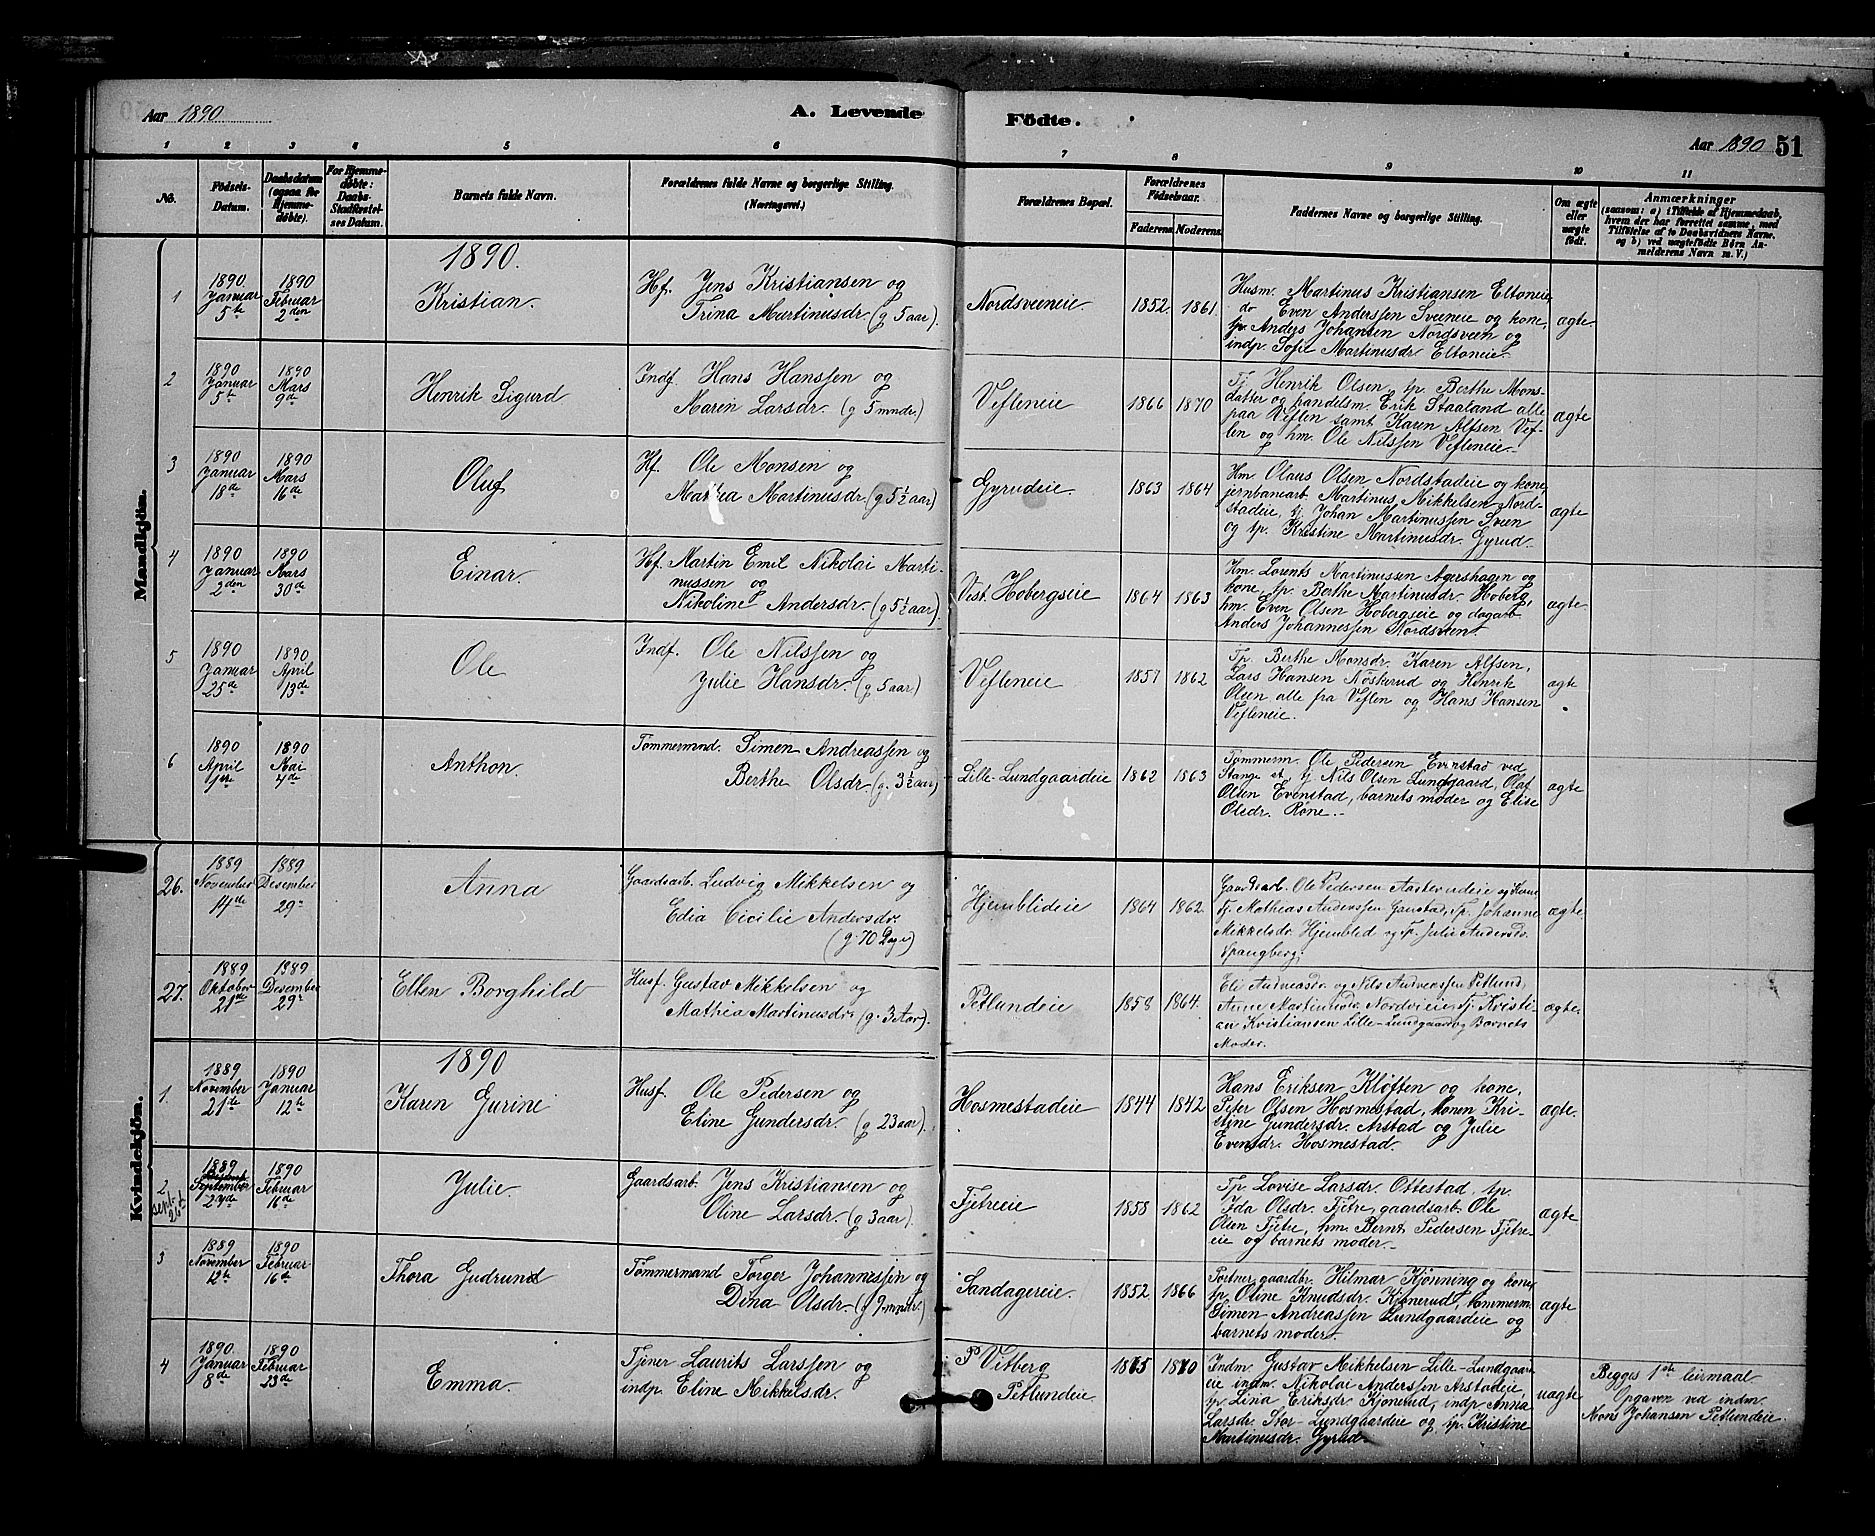 Aar 1890
A. Levende
Födte.
Aar 1890 51
1 2 3 4 5 6 7 8 9 10 11
No.
Födsels-
Datum.
Daabsdatum
(ogsaa for
Hjemme-
döbte).
For Hjemme-
döbte:
Daabs-
Stadfæstel-
ses Datum.
Barnets fulde Navn.
Forældrenes fulde Navne og borgerlige Stilling.
(Næringsvei.)
Forældrenes Bopæl.
Forældrenes
Födselsaar.
Faderens Moderens
Faddernes Navne og borgerlige Stilling.
Om ægte
eller
uægte
født.
Anmærkninger
(saasom: a) i Tilfælde af Hjemmedaab,
hvem der har forrettet samme, med
Tilföielse af to Daabsvidners Navne.
og b) ved uægtefödte Börn An-
melderens Navn m. V.)
Mandkjön.
1890.
1
1890
Januar
5te
1890
Februar
2den
Kristian.
Hf. Jens Kristiansen og
Trina Martinusdr. (g 5 aar).
Nordsveeneie.
1852. 1861.
Husm. Martinus Kristiansen Eltoneie,
do Even Anderssen Sveeneie og kone,
tp. Anders Johansen Nordsveen og
indp. Sofie Martinusdr Eltoneie.
ægte.
2
1890
Januar
5te
1890
Mars
9de
Henrik Sigurd
Indf. Hans Hanssen og
Maren Larsdr. (g 5 mndr.)
Vefleneie
1866 1870
Tj. Henrik Olsen, tp. Berthe Mons-
datter og handelsm. Erik Staaland alle
paa Veflen samt Karen Alfsen Vef-
len og hm. Ole Nilssen Vefleneie.
ægte
3
1890
Januar
18de
1890
Mars
16de
Oluf
Hf. Ole Monsen og
Mathea Martinusdr. (g 5½ aar)
Gyrudeie.
1863 1864
Hm Olaus Olsen Nordstadeie og kone,
jernbanearb. Martinus Mikkelsen Nord-
stadeie, tj Johan Martinussen Sveen
og tp. Kristine Martinusdr. Gyrud.
ægte
4
1890
Januar
2den
1890
Mars
30de
Einar.
Hf. Martin Emil Nikolai Marti-
nussen og
Nikoline Andersdr. (g 5½ aar)
Vest. Hobergseie
1864 1863
Hm. Lorents Martinussen Agershagen og
kone, tp. Berthe Martinusdr. Hoberg,
hm. Even Olsen Hobergseie og dagarb
Anders Johannessen Nordsveen.
ægte.
5
1890
Januar
25de
1890
April
13de
Ole
Indf. Ole Nilssen og
Julie Hansdr. (g 5 aar)
Vefleneie
1857 1862
Tp. Berthe Monsdr. Karen Alfsen,
Lars Hansen Nöskerud og Henrik
Olsen alle fra Veflen og Hans Hansen
Vefleneie.
ægte
6
1890
April
1ste
1890
Mai
4de
Anthon.
Tommermnd. Simen Andreassen og
Berthe Olsdr. (g. 3½ aar)
Lille-Lundgaardeie
1862 1863
Tommerm. Ole Pedersen Evenstad ved
Stange st, tj Nils Olsen Lundgaard, Olaf
Olsen Evenstad, barnets moder og Elise
Olsdr. Röne.
ægte
Kvindekjön.
26.
1889
November
14de
1889
Desember
29de
Anna
Gaardsarb. Ludvig Mikkelsen og
Edia Cicilie Andersdr.
(g. 70 Dage)
Hjemblideie
1864 1862.
Gaardsarb. Ole Pedersen Aasterudeie og Kone
Tj. Mathias Anderssen Gaustad, Tp. Johanne
Mikkelsdr. Hjemblid og Tp. Julie Andersdr.
Spangberg.
ægte
27.
1889
Oktober
21de
1889
Desember
29de
Ellen Borghild
Husf. Gustav Mikkelsen og
Mathea Martinusdr. (g. 3 Aar).
Petlundeie
1858 1864.
Eli Andreasdr. og Nils Andreassen Petlund,
Anne Martinusdr. Nordveieie, Tj. Kristi-
an Kristiansen Lille-Lundgaard og Barnets
Moder.
ægte.
1890
1.
1889
November
21de
1890
Januar
12te
Karen Gurine
Husf. Ole Pedersen og
Eline Gundersdr. (g 23 aar)
Hosmestadeie
1844 1842
Hans Eriksen Kløften og kone,
Peter Olsen Hosmestad, konen Kri-
stine Gundersdr. Arstad og Julie
Evensdr. Hosmestad.
ægte.
2
sept.
26de
1889
September
24de
1890
Februar
16de
Julie.
Gaardsarb. Jens Kristiansen og
Oline Larsdr. (g 3 aar).
Tjetreeie
1858 1862
Tp. Lovise Larsdr. Ottestad, tp.
Ida Olsdr. Tjetre, gaardsarb. Ole
Olsen Tjetre, hm. Bernt Pedersen Tjetre-
eie og barnets moder.
ægte
3
1889
November
12te
1890
Februar
16de
Thora Gudrund
Tömmermand Torger Johannessen og
Dina Olsdr. (g 9 mndr.)
Sandagereie.
1852 1866
Portner, gaardbr. Hilmar Kjönning og kone,
tp Oline Knudsdr. Kjönerud, tommerm.
Simen Andreassen Lundgaardeie og
barnets moder.
ægte
4
1890.
Januar
8de
1890
Februar
23de
Emma.
Tjener Laurits Larssen og
indp. Eline Mikkelsdr.
P Vitberg
Petlundeie
1865 1870
Indm Gustav Mikkelsen Lille-Lundgaard-
eie indm. Nikolai Anderssen Arstadeie,
tp Lina Eriksdr Kjonerud, indp Anna
Larsdr. Stor-Lundgaardeie og tp. Kristine
Martinusdr. Gyrud.
uægte
Begges 1ste leirmaal
Opgaven ved indm.
Mons Johansen Petlundeie